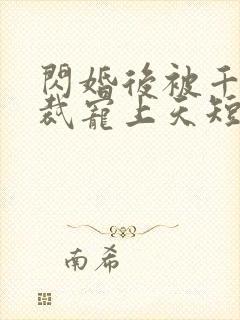 閃婚後被千
裁寵上天短
南希